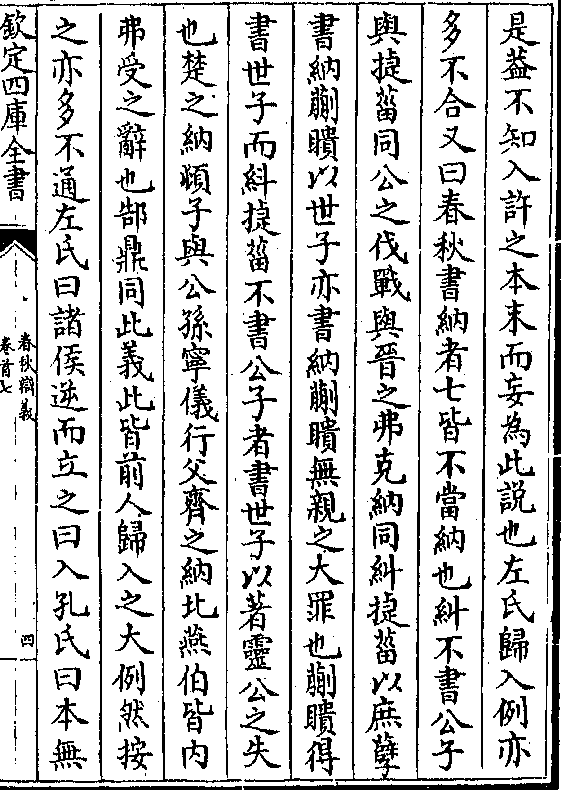 是葢不知入許之本末而妄為此説也左氏歸入例亦
多不合又曰春秋書納者七皆不當納也糾不書公子
與捷菑同公之伐戰與晉之弗克納同糾捷菑以庶孽
書納蒯聵以世子亦書納蒯聵無親之大罪也蒯聵得
書世子而糾捷菑不書公子者書世子以著靈公之失
也楚之納頓子與公孫寧儀行父齊之納北燕伯皆内
弗受之辭也郜鼎同此義此皆前人歸入之大例然按
之亦多不通左氏曰諸侯逆而立之曰入孔氏曰本無
欽定四庫全書
春秋辯義
卷首七
四